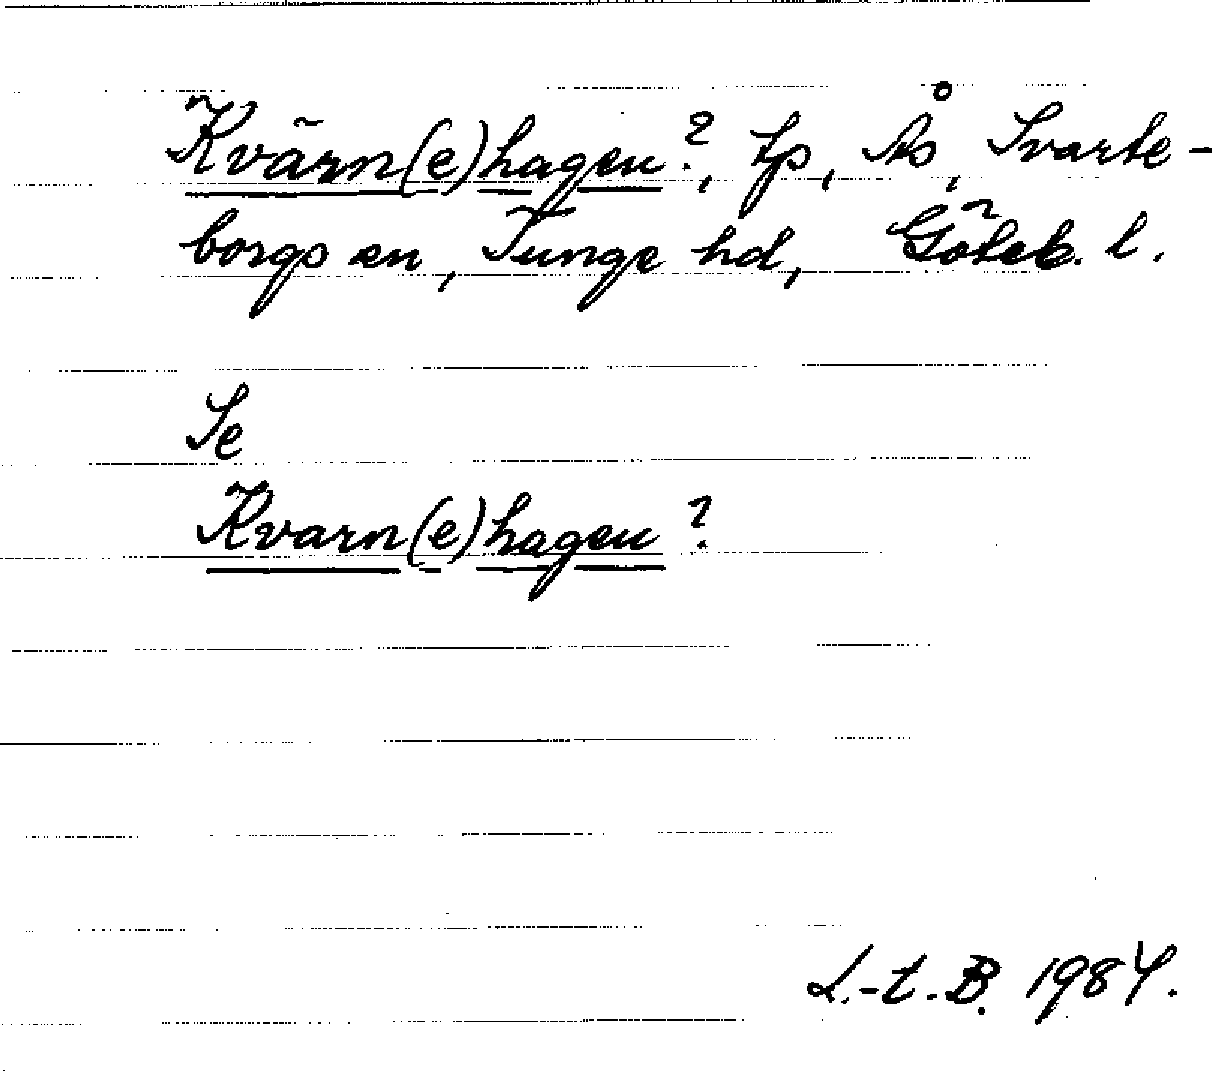 Kvärn(e)hagen?, tp, Ås, Svarte-
borgs sn, Tunge hd, Göteb. l.
Se
Kvarn(e)hagen?
L.-t. B. 1984.